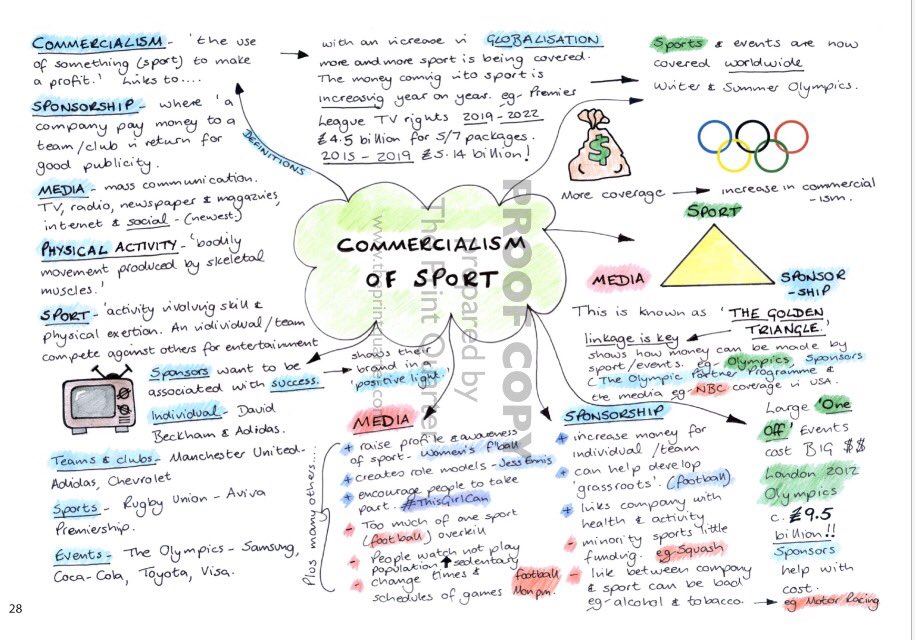 COMMERCIALISM - 'the use
of something (sport) to make
a profit.' Links to....
SPONSORSHIP - where 'a
company pay money to a
team/club in return for
good publicity.
MEDIA - mass communication.
TV, radio, newspaper & magazines,
internet & social - (newest)
PHYSICAL ACTIVITY - 'bodily
movement produced by skeletal
muscles.'
SPORT - 'activity involving skill &
physical exertion. An individual/team
compete against others for entertainment
DEFINITIONS
with an increase in GLOBALISATION
more and more sport is being covered.
The money coming into sport is
increasing year on year. eg - Premier
League TV rights 2019-2022
£4.5 billion for 5/7 packages.
2015 - 2019 £5.14 billion!
Sports & events are now
covered worldwide
Winter & Summer Olympics.
$
More coverage → increase in commercial
-ism.
COMMERCIALISM
OF SPORT
SPORT
MEDIA
SPONSOR
-SHIP
This is known as 'THE GOLDEN
TRIANGLE.'
linkage is key
shows how money can be made by
sport/events. eg Olympics, Sponsors
(The Olympic Partner Programme &
the media eg NBC coverage in USA.
Sponsors want to be
associated with success.
shows their
brand in a
'positive light.'
Individual - David
Beckham & Adidas.
Teams & clubs - Manchester United -
Adidas, Chevrolet
Sports - Rugby Union - Aviva
Premiership.
Events - The Olympics - Samsung,
Coca-Cola, Toyota, Visa.
Plus many others....
MEDIA
+ raise profile & awareness
of sport - Women's f'ball
+ creates role models - Jess Ennis
+ encourage people to take
part. #ThisGirlCan
- Too much of one sport
(football) overkill
- People watch not play
population ↑ sedentary
- change times &
schedules of games
football
Mon pm.
SPONSORSHIP
+ increase money for
individual/team
+ can help develop
'grassroots'. (football)
+ links company with
health & activity
- minority sports little
funding. eg Squash
- link between company
& sport can be bad
eg - alcohol & tobacco. → eg Motor Racing
Large 'One
Off' Events
cost BIG $$
London 2012
Olympics
c. £9.5
billion!!
Sponsors
help with
cost.
PROOF COPY
Prepared by
The Print
28